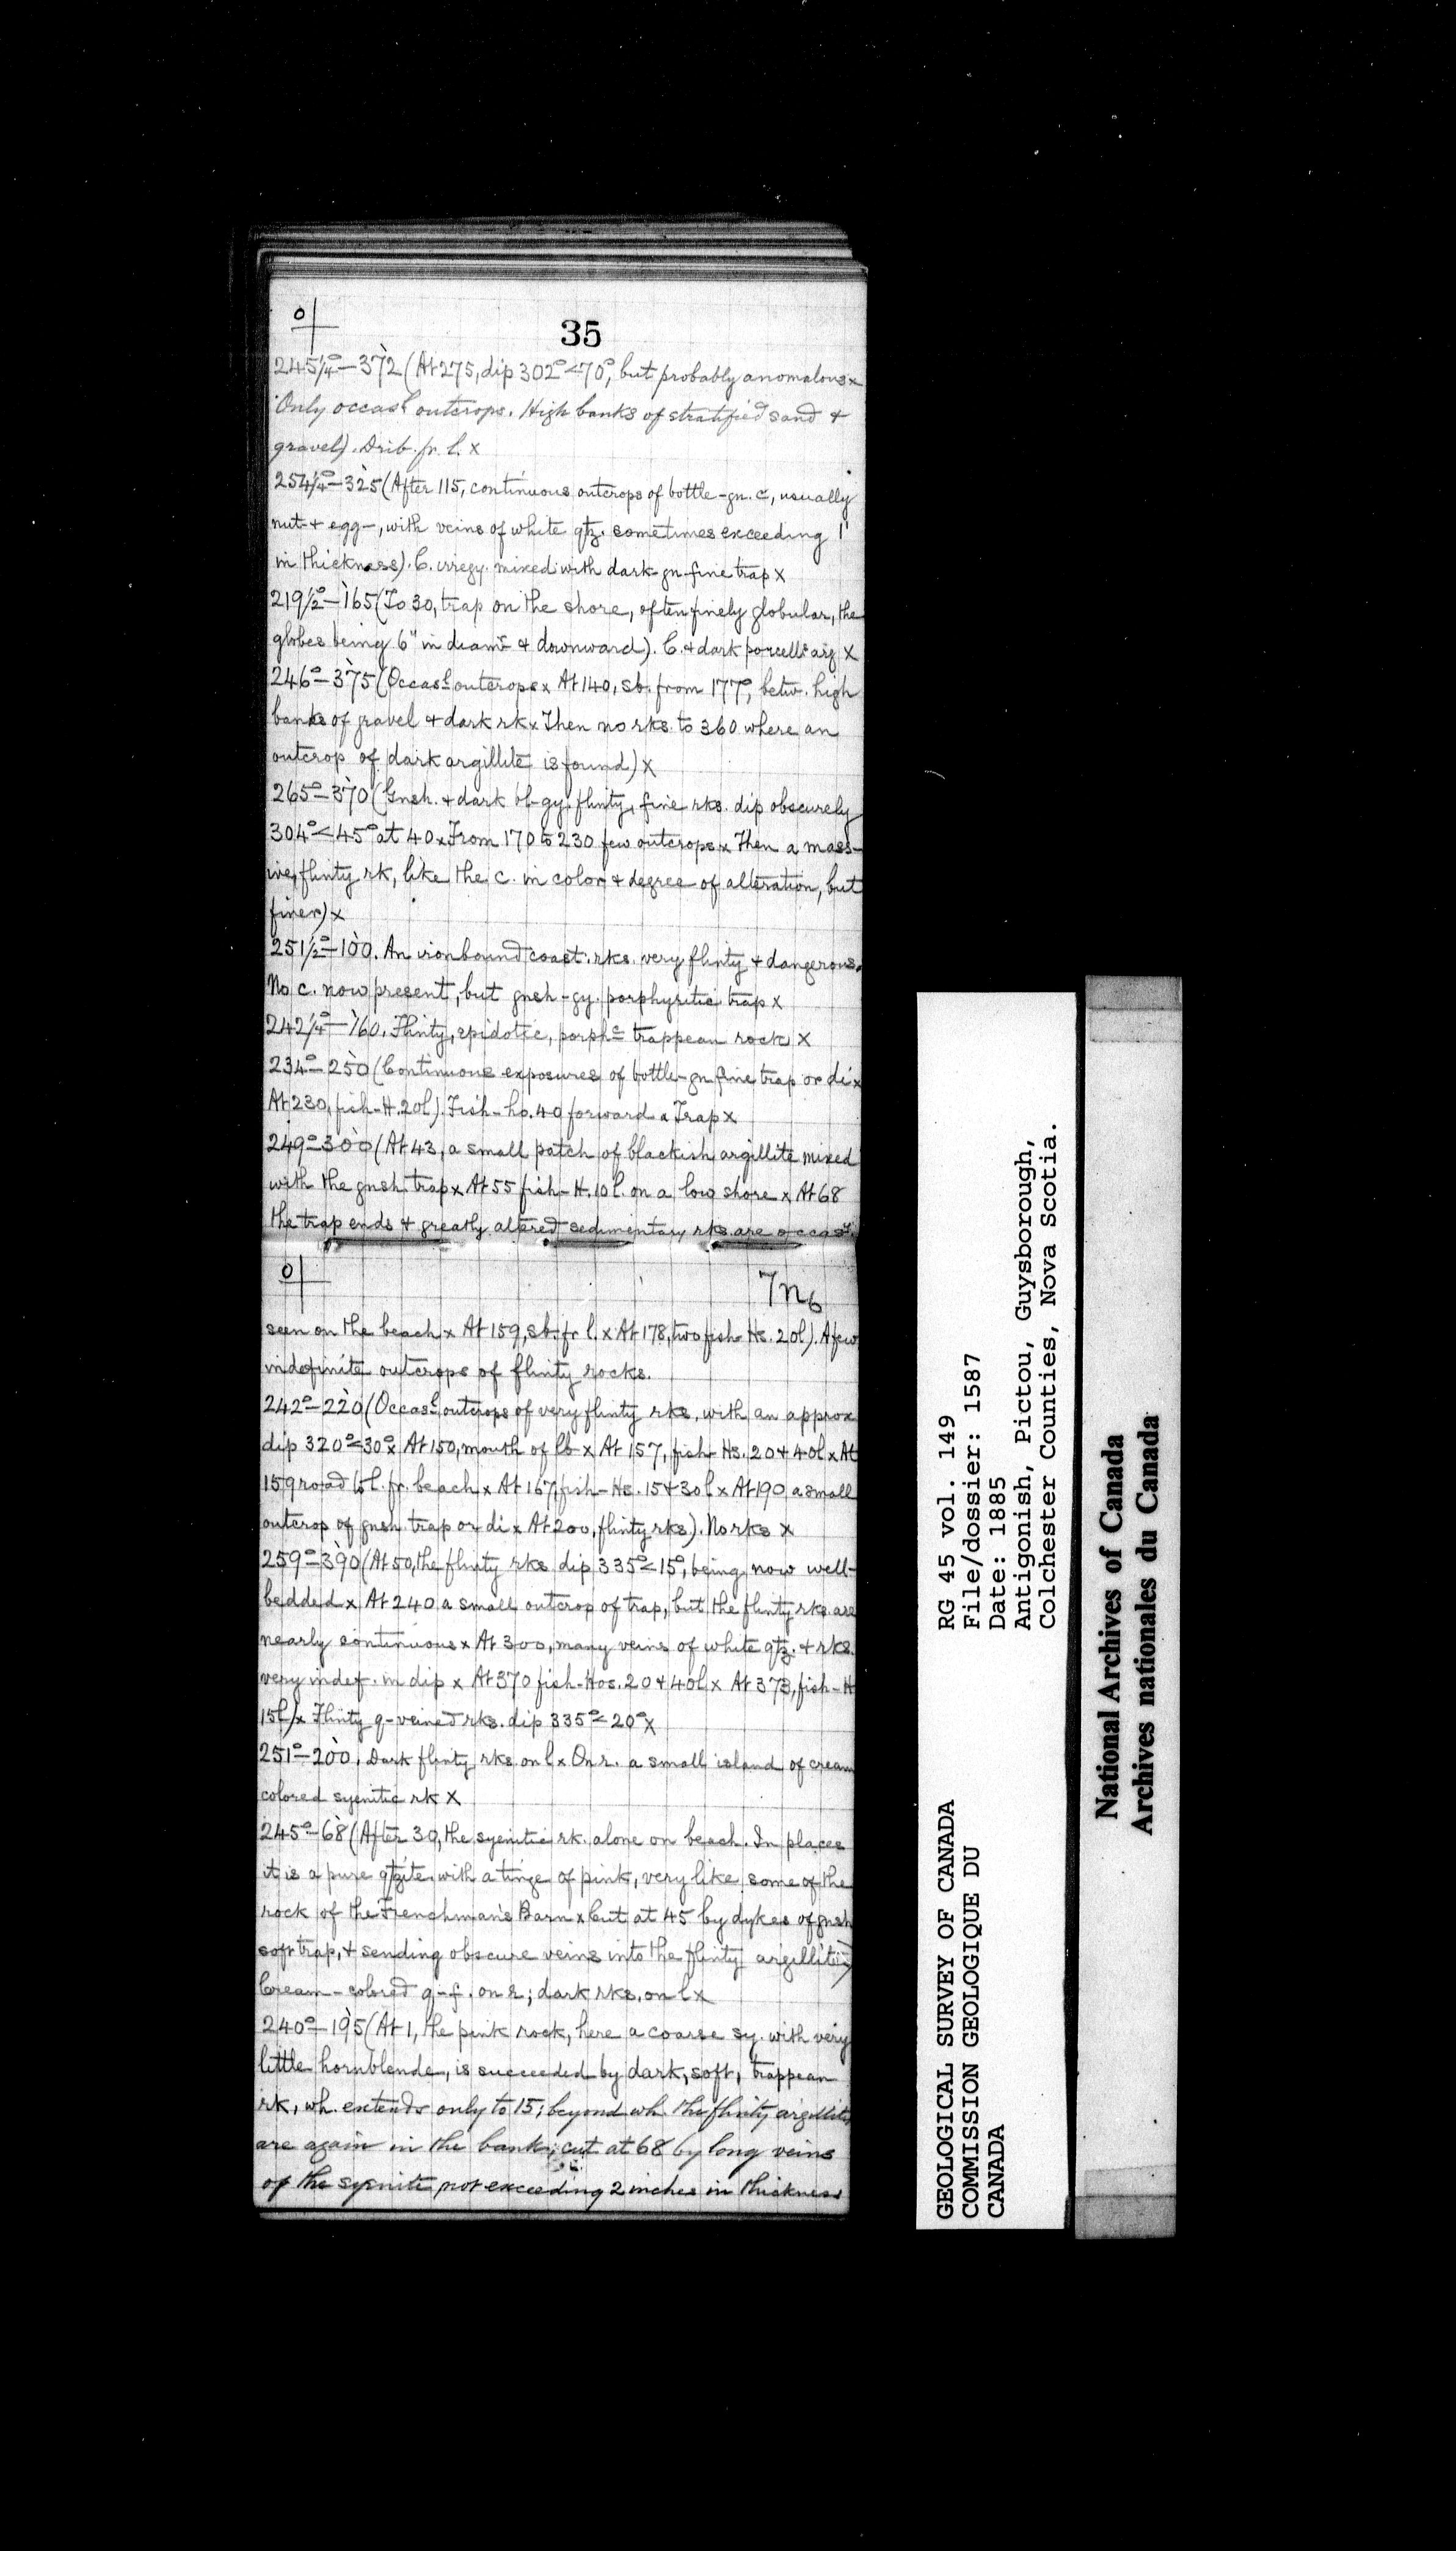 0
35
245¼°–372 (At 275, dip 302°<70°, but probably anomalous x
Only occasl outcrops. High banks of stratified sand +
gravel). Drib. fr. l. x
254¼°–325 (After 115, continuous outcrops of bottle-gn. c, usually
nut- + egg-, with veins of white qtz. sometimes exceeding 1'
in thickness). C. irregy. mixed with dark-gn fine trap x
219½°–165 (To 30, trap on the shore, often finely globular, the
globes being 6" in diamr + downward). C. + dark porcells arg x
246°–375 (Occasl outcrops x At 140, sb. from 177°, betw. high
banks of gravel + dark rk x Then no rks. to 360 where an
outcrop of dark argillite is found) x
265°–370 (Gnsh. + dark bl-gy. flinty, fine rks. dip obscurely
304°<45° at 40 x From 170 to 230 few outcrops x Then a mass-
ive, flinty rk, like the c. in color + degree of alteration, but
finer) x
251½°–100. An ironbound coast: rks. very flinty + dangerous.
No c. now present, but gnsh-gy. porphyritic trap x
242¼°–160. Flinty, epidotic, porphc trappean rock x
234°–250 (Continuous exposures of bottle-gn fine trap or di x
At 230, fish-H. 20l). Fish-ho. 40 forward x Trap x
249°–300 (At 43, a small patch of blackish argillite mixed
with the gnsh trap x At 55 fish-H. 10 l. on a low shore x At 68
the trap ends + greatly altered sedimentary rks. are occasl
0
7n6
seen on the beach x At 159, sb. fr l. x At 178, two fish-Hs. 20l). A few
indefinite outcrops of flinty rocks.
242°–220 (Occasl outcrops of very flinty rks, with an approx
dip 320°<30° x At 150, mouth of lb x At 157, fish-Hs. 20 + 40l x At
159 road to l. fr. beach x At 167, fish-Hs. 15 + 30 l x At 190 a small
outcrop of gnsh trap or di x At 200, flinty rks). No rks x
259°–390 (At 50, the flinty rks dip 335°<15°, being now well-
bedded x At 240 a small outcrop of trap, but the flinty rks. are
nearly continuous x At 300, many veins of white qtz. + rks.
very indef. in dip x At 370 fish-Hos. 20 + 40l x At 373, fish-H
15l) x Flinty q-veined rks. dip 335°<20° x
251°–200. Dark flinty rks. on l x On r. a small island of cream
colored syenitic rk x
245°–68 (After 30, the syenitic rk. alone on beach. In places
it is a pure qtzite with a tinge of pink, very like some of the
rock of the Frenchman's Barn x Cut at 45 by dykes of gnsh
soft trap, + sending obscure veins into the flinty argillites)
Cream-colored q-f. on r; dark rks. on l x
240°–195 (At 1, the pink rock, here a coarse sy. with very
little hornblende, is succeeded by dark, soft, trappean
rk, wh. extends only to 15; beyond wh. the flinty argillites
are again in the bank; cut at 68 by long veins
of the syenite not exceeding 2 inches in thickness
GEOLOGICAL SURVEY OF CANADA
COMMISSION GEOLOGIQUE DU
CANADA
RG 45 vol. 149
File/dossier: 1587
Date: 1885
Antigonish, Pictou, Guysborough,
Colchester Counties, Nova Scotia.
National Archives of Canada
Archives nationales du Canada